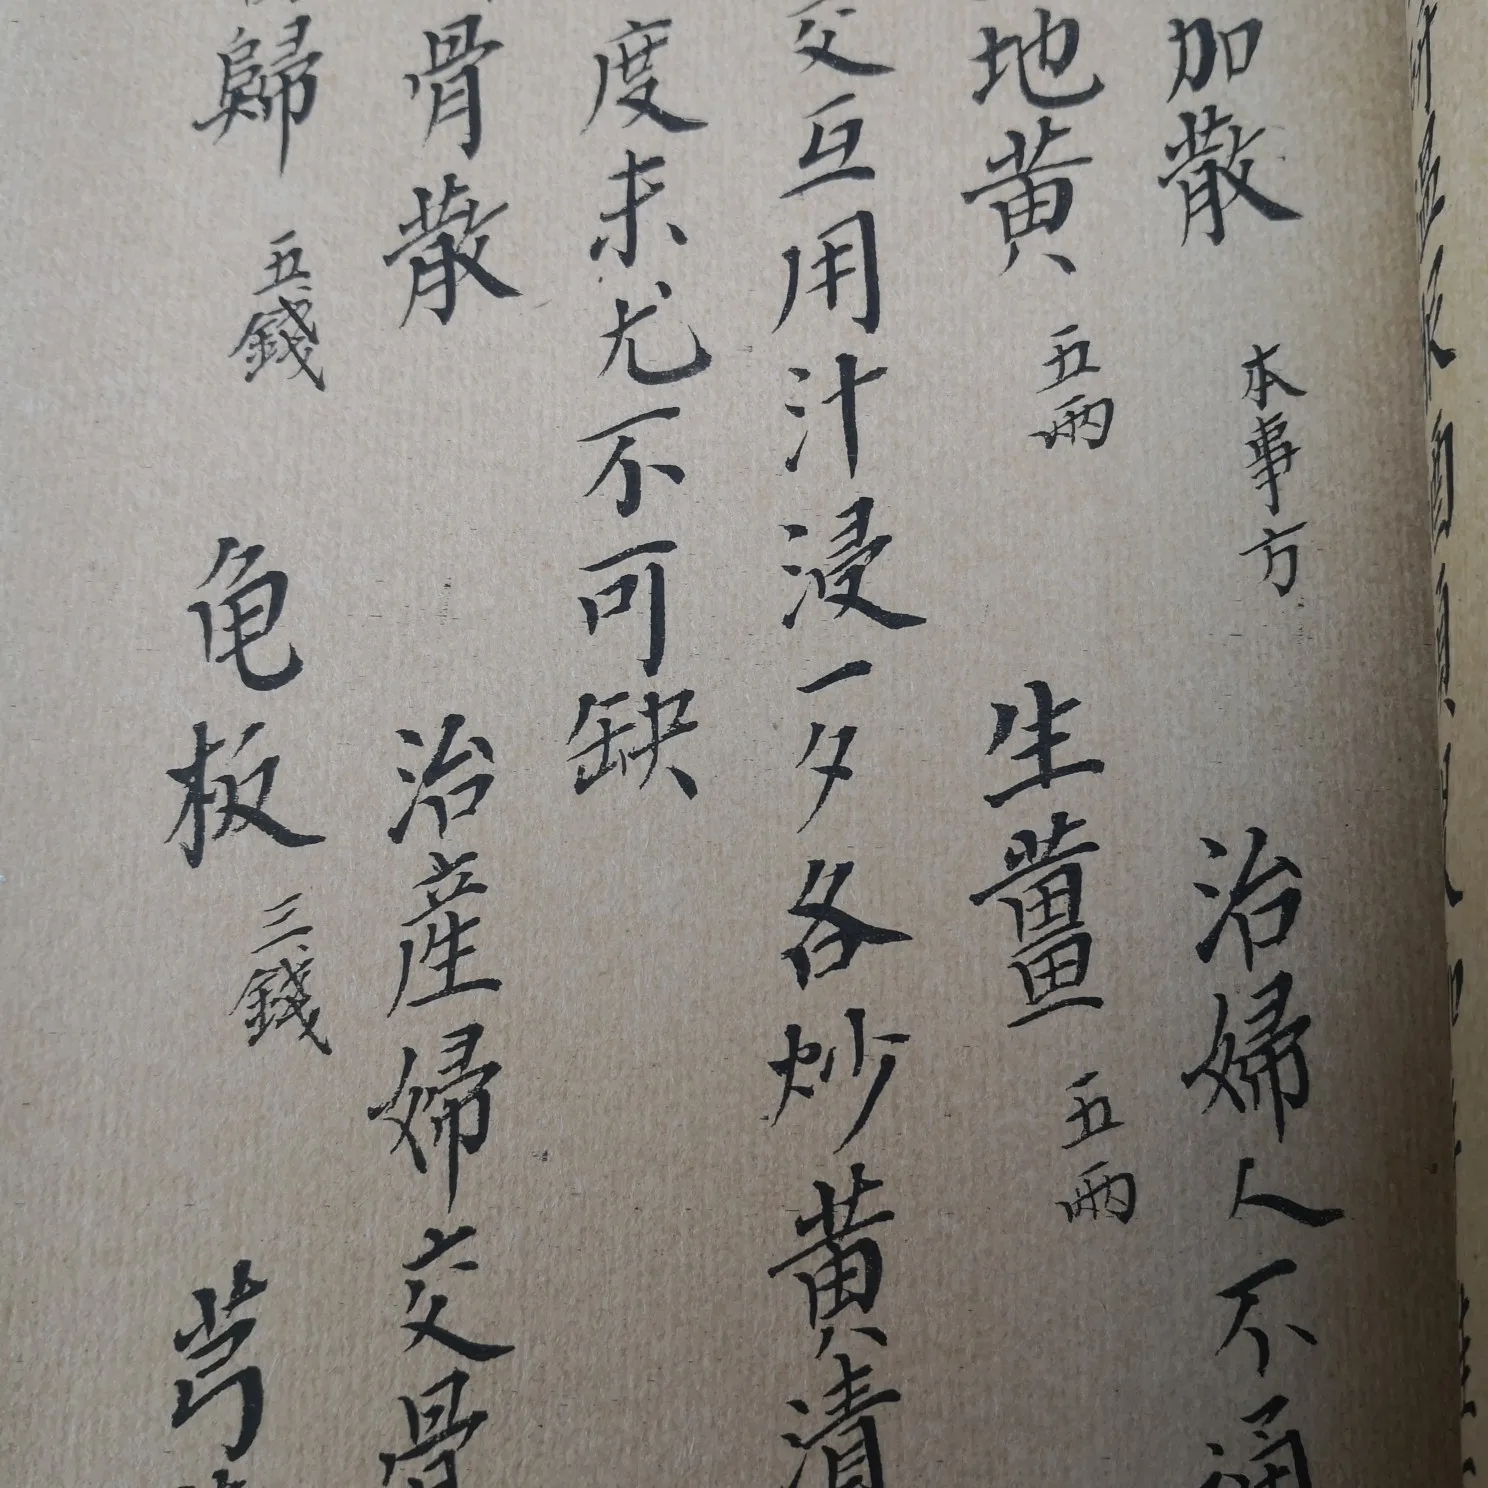 加散 本事方 治婦人不通
地黄 五兩 生薑 五兩
交互用汁浸一夕各炒黄漬
度末尤不可缺
骨散 治産婦交骨
歸 五錢 亀板 三錢 芎